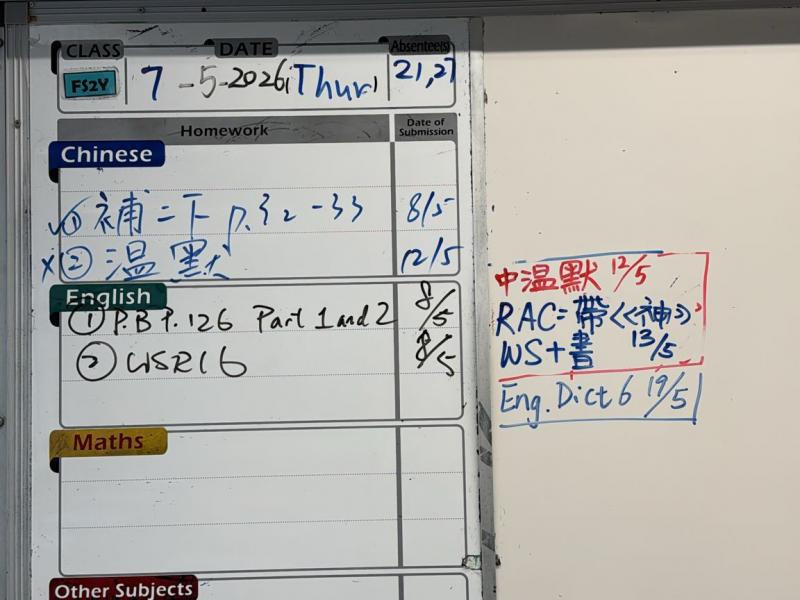 CLASS DATE Absentee(s)
FS2Y 7-5-2026(Thur) 21,27
Homework Date of Submission
Chinese
✓① 補二下 p.32-33 8/5
x② 温默 12/5
English
① P.B P.126 Part 1 and 2 8/5
② WSR16 8/5
Maths
Other Subjects
中温默 12/5
RAC=帶《神》
WS+書 13/5
Eng. Dict 6 19/5